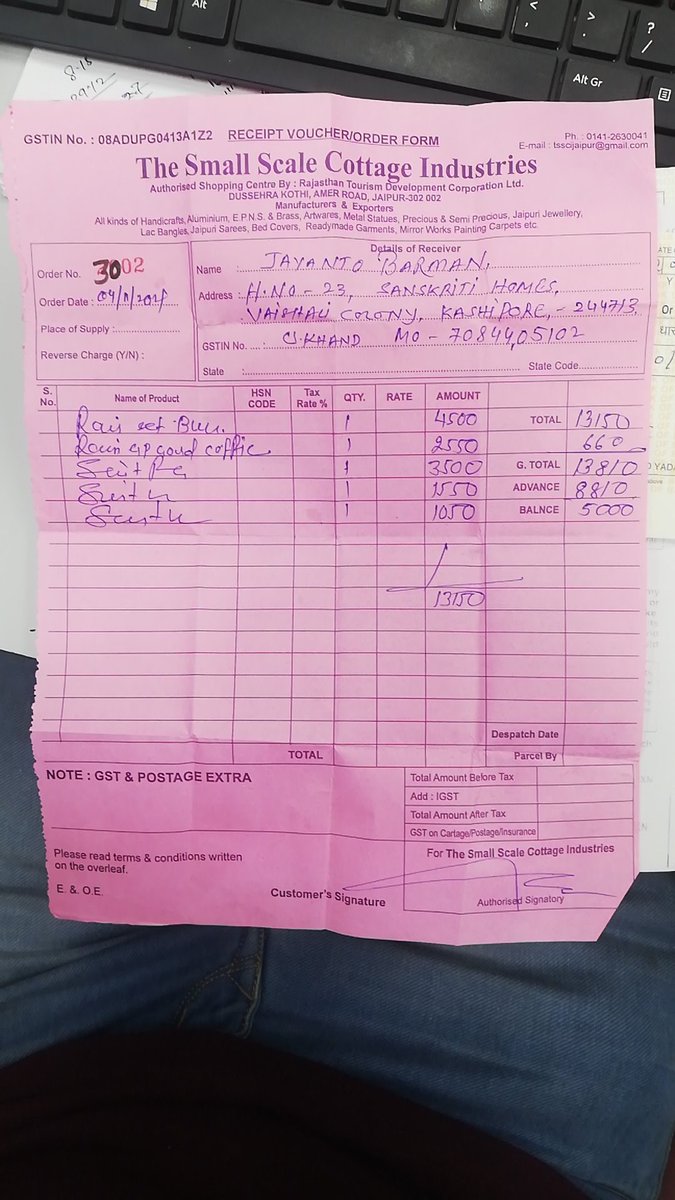 GSTIN No. : 08ADUPG0413A1Z2 RECEIPT VOUCHER/ORDER FORM Ph. : 0141-2630041
E-mail : tsscijaipur@gmail.com
The Small Scale Cottage Industries
Authorised Shopping Centre By : Rajasthan Tourism Development Corporation Ltd.
DUSSEHRA KOTHI, AMER ROAD, JAIPUR-302 002
Manufacturers & Exporters
All kinds of Handicrafts, Aluminium, E.P.N.S. & Brass, Artwares, Metal Statues, Precious & Semi Precious, Jaipuri Jewellery,
Lac Bangles, Jaipuri Sarees, Bed Covers, Readymade Garments, Mirror Works Painting Carpets etc.
Order No. 3002
Order Date :
Place of Supply :
Reverse Charge (Y/N) :
Details of Receiver
Name : JAYANTO BARMAN,
Address : H.NO - 23, SANSKRITI HOMES,
VAISHALI COLONY, KASHIPORE, - 244713
GSTIN No. .... : U.KHAND MO - 7084405102
State : State Code
S. No. Name of Product HSN CODE Tax Rate % QTY. RATE AMOUNT
1 4500 TOTAL 13150
1 2550 660
1 3500 G. TOTAL 13810
1 1550 ADVANCE 8810
1 1050 BALNCE 5000
13150
Despatch Date
TOTAL Parcel By
NOTE : GST & POSTAGE EXTRA
Total Amount Before Tax
Add : IGST
Total Amount After Tax
GST on Cartage/Postage/Insurance
Please read terms & conditions written
on the overleaf.
E. & O.E.
Customer's Signature
For The Small Scale Cottage Industries
Authorised Signatory
Alt
Alt Gr